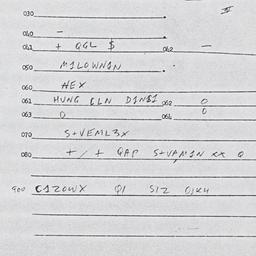 030
040 —
041 + QGL $ 042 —
050 M1LOWN1N
060 HEX
061 HUNG GLN D1N$1 062 0
063 0 064 0
070 S+VEML3X
080 +/+ QAP S+VAM1N XX Q
900 C120WX Q1 S12 OJK4